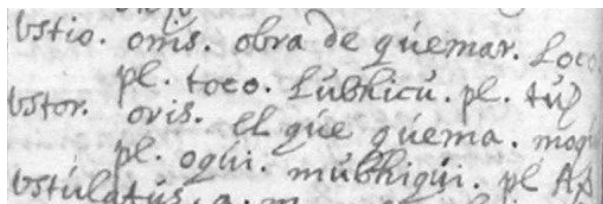 vstio. onis. obra de quemar. Loco
pl. toco. Lúbhicú. pl. tú
vstor. oris. el qúe qúema. moqú
pl. oqúi. múbhiqúi. pl
vstúlatús. a. m